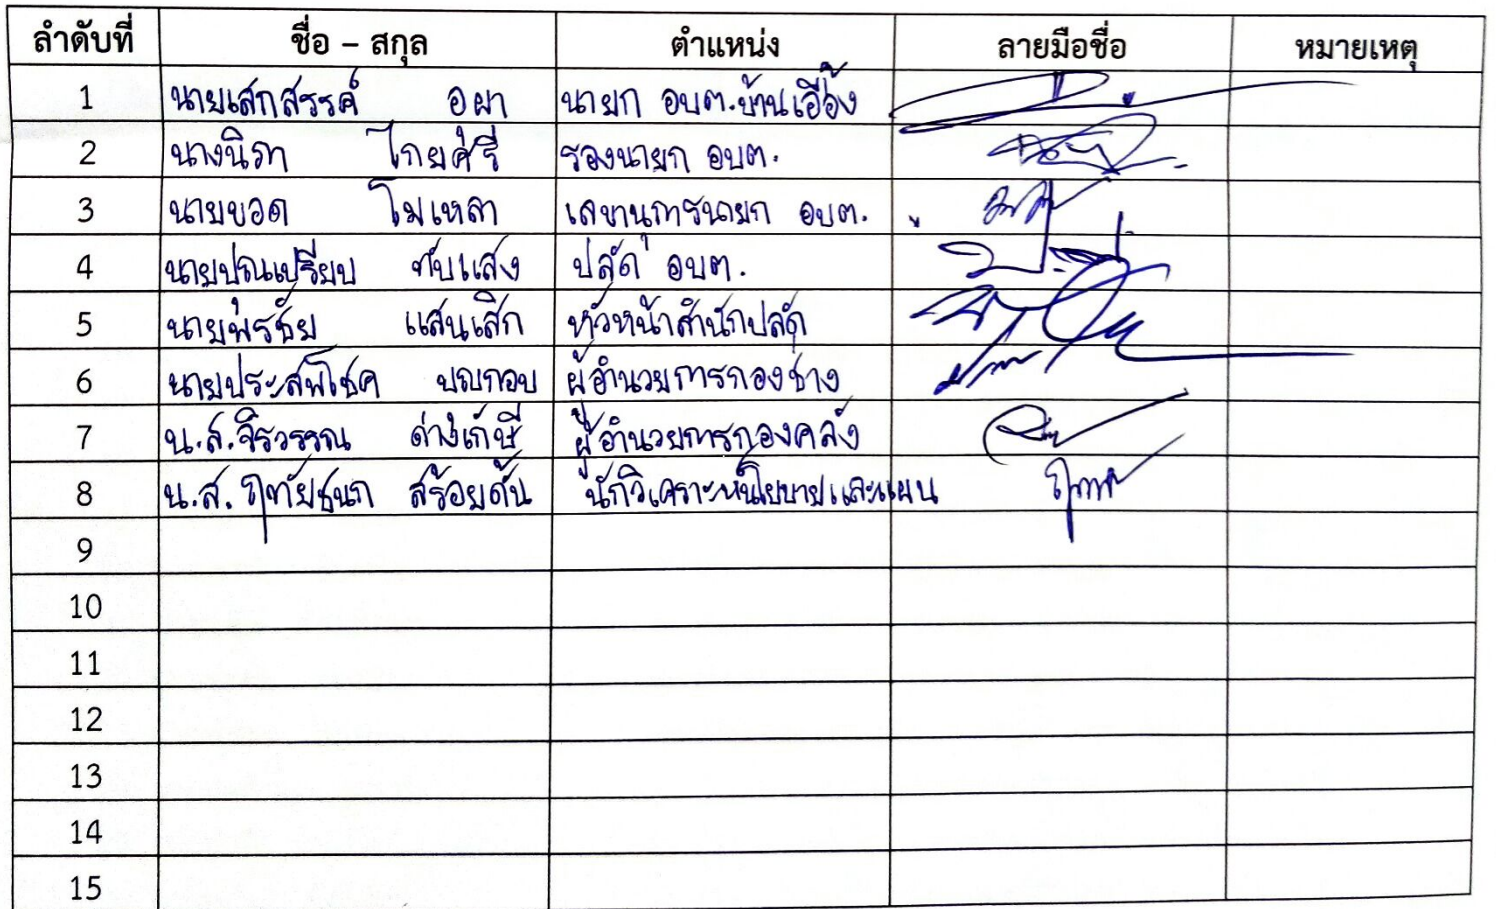 ลำดับที่ ชื่อ – สกุล ตำแหน่ง ลายมือชื่อ หมายเหตุ
1 นายเสกสรรค์ อุผา นายก อบต.บ้านเอื้อง
2 นางนิภา ไกยศรี รองนายก อบต.
3 นายยอด โมเหลา เลขานุการนายก อบต.
4 นายปานเปรียบ ทับแสง ปลัด อบต.
5 นายพรชัย แสนเสิก หัวหน้าสำนักปลัด
6 นายประสพโชค ผู้อำนวยการกองช่าง
7 น.ส.จิรวรรณ ผู้อำนวยการกองคลัง
8 น.ส. ฤทัยชนก สร้อยดั้น นักวิเคราะห์นโยบายและแผน
9
10
11
12
13
14
15